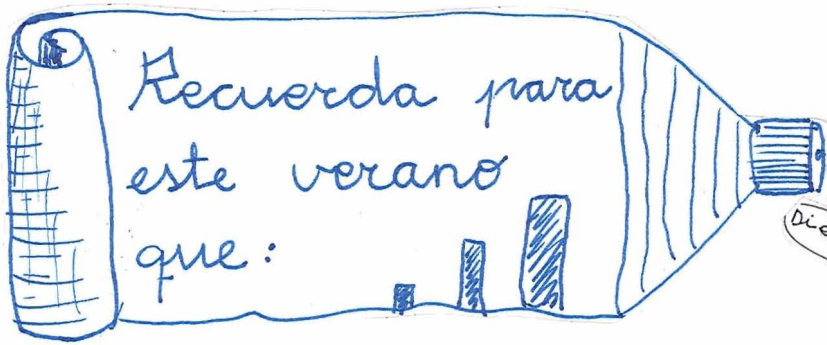 Recuerda para
este verano
que: